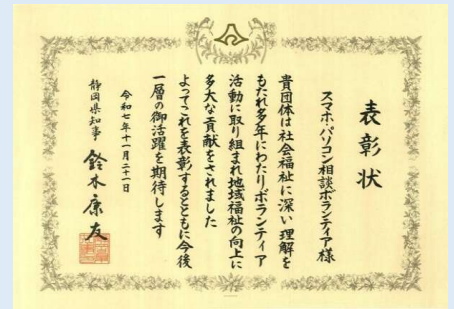 表彰状
スマホ・パソコン相談ボランティア様
貴団体は社会福祉に深い理解を
もたれ多年にわたりボランティア
活動に取り組まれ地域福祉の向上に
多大な貢献をされました
よってこれを表彰するとともに今後
一層の御活躍を期待します
令和七年十一月二十一日
静岡県知事 鈴木康友